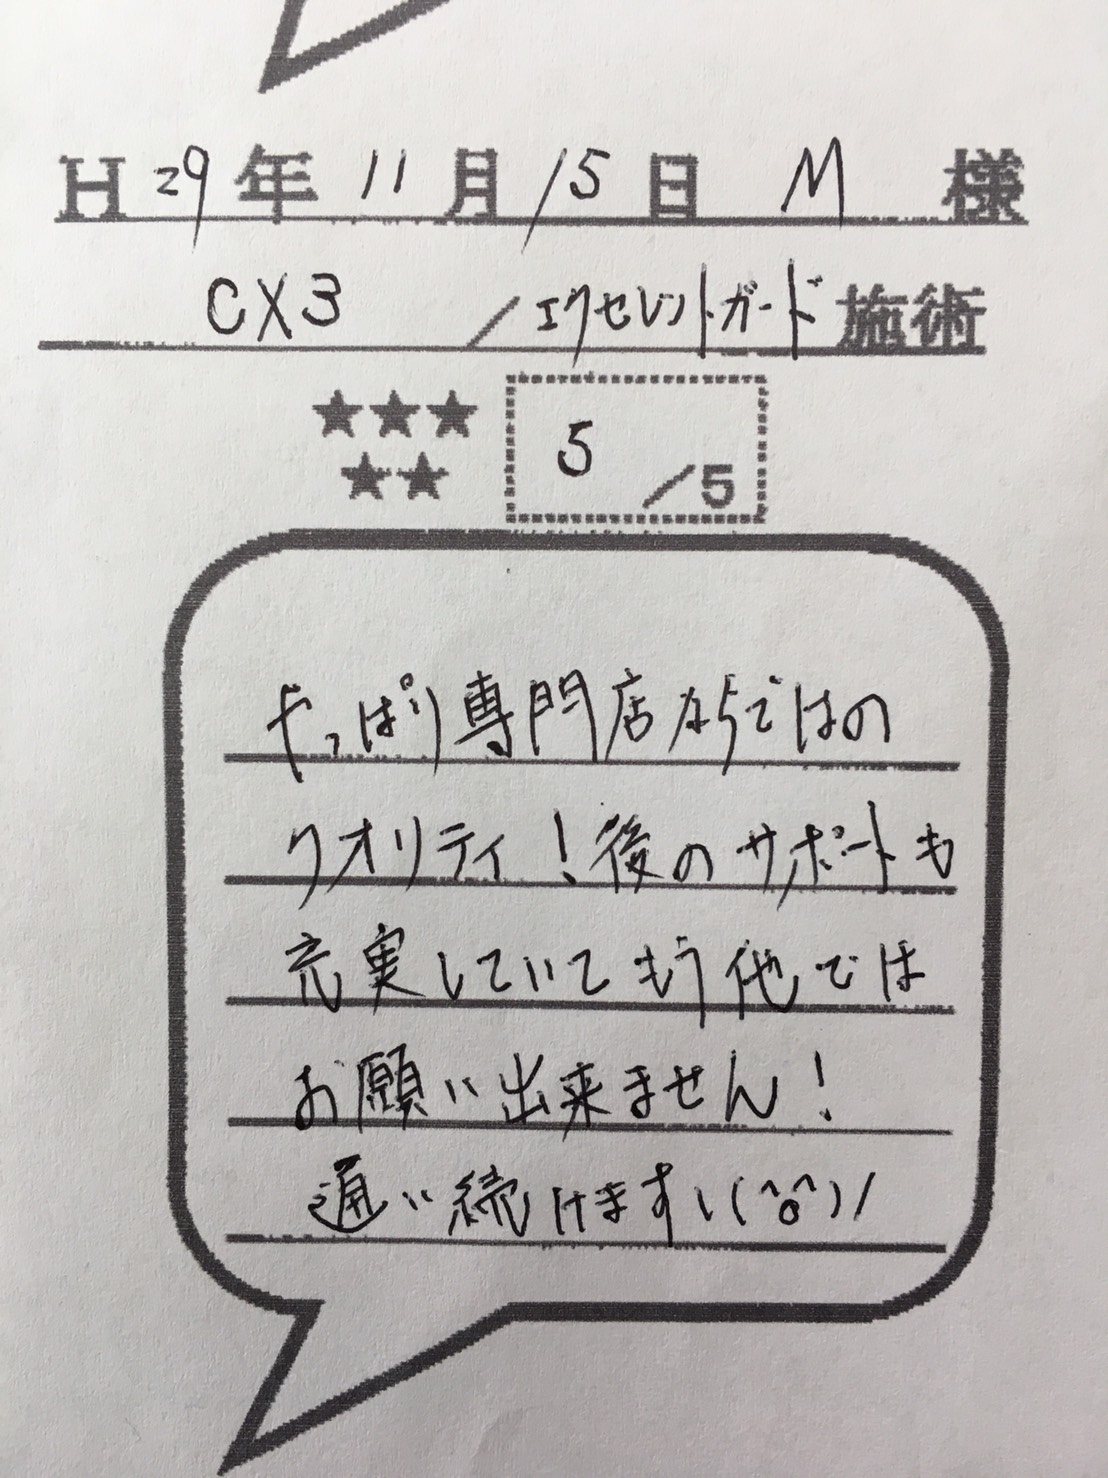 H 29 年 11 月 15 日 M 様
CX3 / エクセレントガード 施術
★★★
★★
5 / 5
やっぱり専門店ならではの
クオリティ！後のサポートも
充実していてもう他では
お願い出来ません！
通い続けます＼(^o^)/